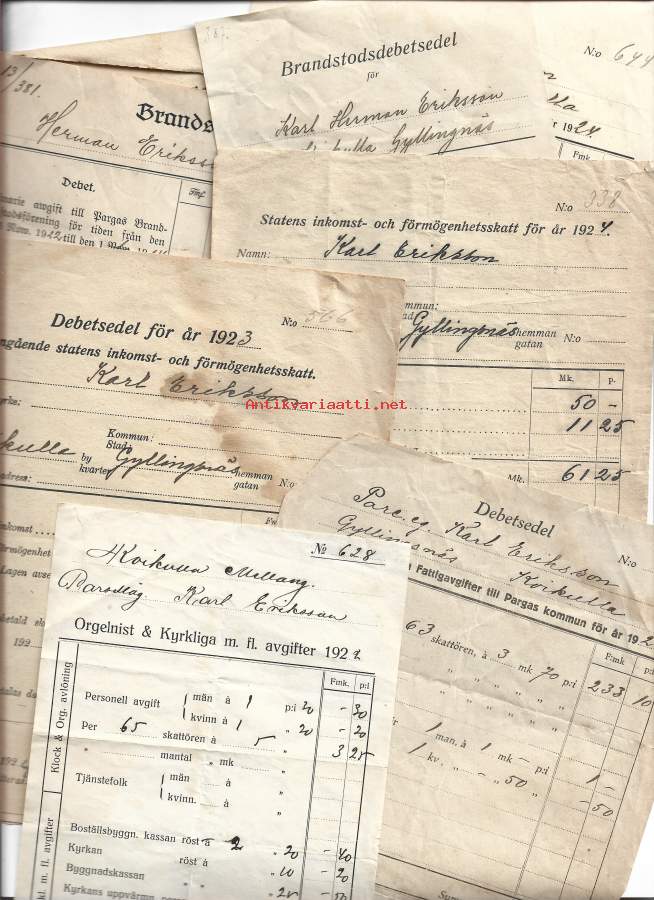 13/381.
Brands
Herman Eriksson
Debet.
Fmf.
marie avgift till Pargas Brand-
stodsförening för tiden från den
Nov. 1922 till den 1 Nov.
387.
Brandstodsdebetsedel
för
Karl Herman Eriksson
Gyllingnäs
N:o 644
1924
Fmk.
N:o 338
Statens inkomst- och förmögenhetsskatt för år 1924.
Namn: Karl Eriksson
Kommun:
Stad:
Gyllingnäs hemman N:o
gatan
Mk. p.
50 -
11 25
Mk. 61 25
N:o 566
Debetsedel för år 1923
ngående statens inkomst- och förmögenhetsskatt.
Karl Eriksson
Antikvariaatti.net
Kommun:
Stad:
kulla by Gyllingnäs hemman N:o
kvarter gatan
adress:
Fm
inkomst
förmögenhet
Lagen avse
betald sk
192
192
Debetsedel
N:o
Parc.eg. Karl Eriksson
Gyllingnäs Koikulla
Fattigavgifter till Pargas kommun för år 192
F:mk. p:i
63 skattören, à 3 mk 70 p:i 233 10
1 man. à 1 mk - p:i 1 -
1 kv. " - " 50 " - 50
Sum
№ 628
Koikulla Mellang.
Karl Eriksson
Orgelnist & Kyrkliga m. fl. avgifter 1922
Fmk. p:i
Klock & Org. avlöning
Personell avgift män à 1 p:i 30 - 30
kvinn à 1 " 20 - 20
Per 65 skattören à 5 " 3 25
" mantal " mk "
Tjänstefolk män à "
kvinn. à "
kl. m. fl. avgifter
Boställsbyggn. kassan röst à 2 " 20 - 40
Kyrkan röst à
Byggnadskassan " " 10 - 20
Kyrkans uppvärmn. " 25 - 50